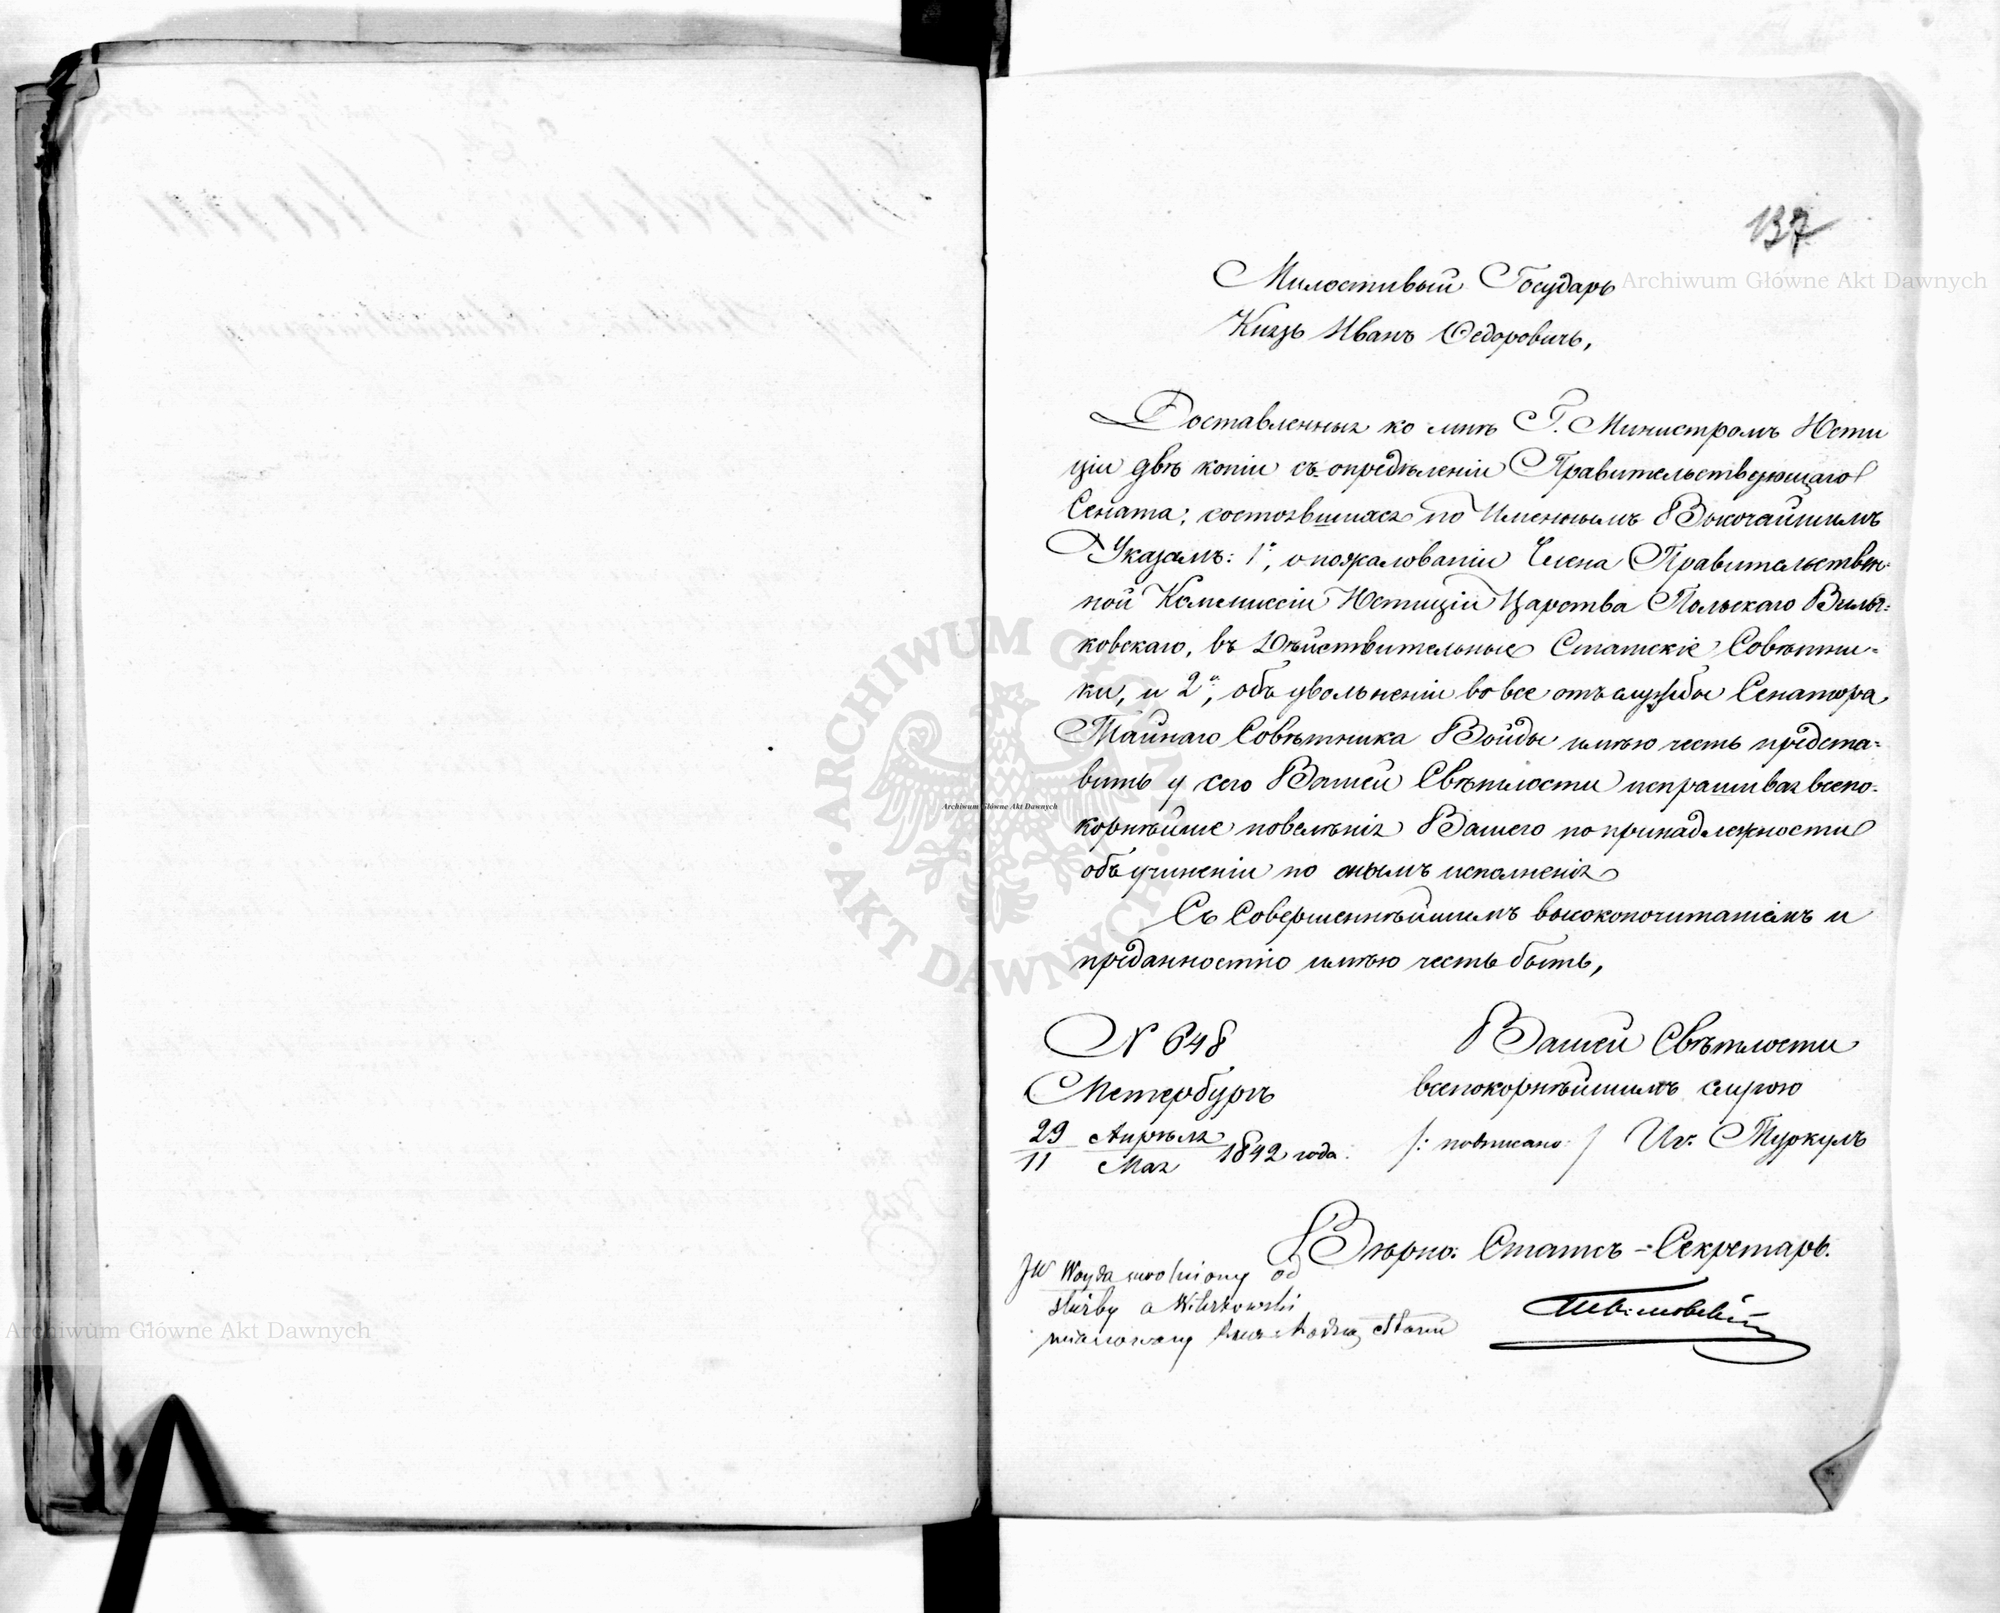 137
Милостивый Государь
Князь Иванъ Ѳедоровичъ,
Доставленныя ко мнѣ Г. Министромъ Юсти
ціи двѣ копіи съ опредѣленій Правительствующаго
Сената, состоявшихся по Имяннымъ Высочайшимъ
Указамъ: 1º, о пожалованіи Члена Правительствен-
ной Коммиссіи Юстиціи Царства Польскаго Вильч-
ковскаго, въ Дѣйствительные Статскіе Совѣтни-
ки, и 2º, объ увольненіи вовсе отъ службы Сенатора
Тайнаго Совѣтника Войды имѣю честь предста-
вить у сего Вашей Свѣтлости испрашивая всепо-
корнѣйше повелѣнія Вашего по принадлежности
объ учиненіи по онымъ исполненія
Съ Совершеннѣйшимъ высокопочитаніемъ и
преданностію имѣю честь быть,
N 648
Вашей Свѣтлости
СПетербургъ
всепокорнѣйшимъ слугою
29/11 Апрѣля/Мая 1842 года.
/: подписано: / Иг. Туркулъ
Вѣрно: Статсъ-Секретарь.
JW Woyda uwolniony od
służby a Wilczkowski
mianowany Rzecz. Radzcą Stanu
Archiwum Główne Akt Dawnych
Archiwum Główne Akt Dawnych
Archiwum Główne Akt Dawnych
ARCHIWUM GŁÓWNE AKT DAWNYCH